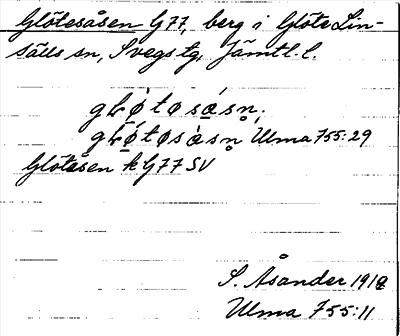 Glötesåsen G77, berg i Glöte Lin-
sälls sn, Svegs tg, Jämtl. l.
Ulma 755:29
Glötåsen k G77 SV
S. Åsander 1918
Ulma 755:11